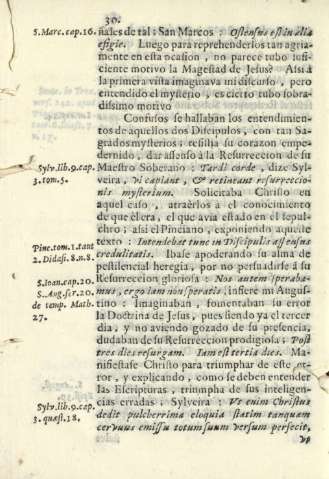 30.
S. Marc. cap. 16.
ñales de tal: San Marcos: Ostensus est in alia
efigie. Luego para reprehenderlos tan agria-
mente en esta ocasion, no parece tubo sufi-
ciente motivo la Magestad de Jesus? Assi à
la primera vista imaginava mi discurso, pero
entendido el mysterio, es cierto tubo sobra-
dissimo motivo
Confusos se hallaban los entendimien-
tos de aquellos dos Discipulos, con tan Sa-
grados mysterios; resistia su corazon empe-
dernido, dar assenso à la Resurreccion de su
Sylv. lib. 9. cap.
3. tom. 5.
Maestro Soberano: Tardi corde, dize Syl-
veira, ut capiant, & retineant resurrectio-
nis mysterium. Solicitaba Christo en
aquel caso, atraèrlos à el conocimiento
de que èl era, el que avia estado en el sepul-
chro; assi el Pinciano, exponiendo aquelte
Pinc. tom. 1. tant
2. Didasc. 8. n. 8.
texto: Intendebat tunc in Discipulis assensus
credulitatis. Ibase apoderando su alma de
pestilencial heregia, por no persuadirse à su
S. Ioan. cap. 20.
S. Aug. ser. 20.
de temp. Math.
27.
Resurreccion gloriosa: Nos autem speraba-
mus, ergo iam non speratis, infiere mi Augus-
tino: Imaginaban, fomentaban su error
la Doctrina de Jesus, pues siendo ya el tercer
dia, y no aviendo gozado de su presencia,
dudaban de su Resurreccion prodigiosa: Post
tres dies resurgam. Iam est tertia dies. Ma-
nifiestase Christo para triumphar de este er-
ror, y explicando, como se deben entender
las Escripturas, triumpha de sus inteligen-
Sylv. lib. 9. cap.
3. quæst. 18.
cias erradas. Sylveira: Ut enim Christus
dedit pulcherrima eloquia statim tanquam
cervus emissu totum suum versum persecit,